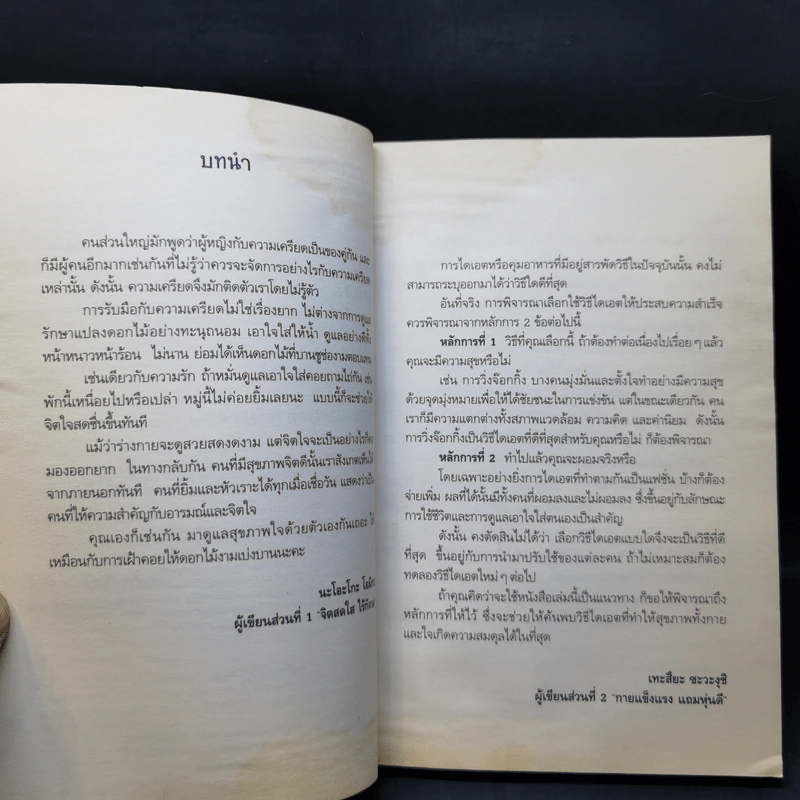 บทนำ
คนส่วนใหญ่มักพูดว่าผู้หญิงกับความเครียดเป็นของคู่กัน และ
ก็มีผู้คนอีกมากเช่นกันที่ไม่รู้ว่าควรจะจัดการอย่างไรกับความเครียด
เหล่านั้น ดังนั้น ความเครียดจึงมักติดตัวเราโดยไม่รู้ตัว
การรับมือกับความเครียดไม่ใช่เรื่องยาก ไม่ต่างจากการดูแล
รักษาแปลงดอกไม้อย่างทะนุถนอม เอาใจใส่ให้น้ำ ดูแลอย่างดีทั้ง
หน้าหนาวหน้าร้อน ไม่นาน ย่อมได้เห็นดอกไม้ที่บานชูช่องามตอบแทน
เช่นเดียวกับความรัก ถ้าหมั่นดูแลเอาใจใส่คอยถามไถ่กัน เช่น
พักนี้เหนื่อยไปหรือเปล่า หมู่นี้ไม่ค่อยยิ้มเลยนะ แบบนี้ก็จะช่วยให้
จิตใจสดชื่นขึ้นทันที
แม้ว่าร่างกายจะดูสวยสดงดงาม แต่จิตใจจะเป็นอย่างไรก็
มองออกยาก ในทางกลับกัน คนที่มีสุขภาพจิตดีนั้นเราสังเกตเห็นได้
จากภายนอกทันที คนที่ยิ้มและหัวเราะได้ทุกเมื่อเชื่อวัน แสดงว่าเป็น
คนที่ให้ความสำคัญกับอารมณ์และจิตใจ
คุณเองก็เช่นกัน มาดูแลสุขภาพใจด้วยตัวเองกันเถอะ ให้
เหมือนกับการเฝ้าคอยให้ดอกไม้งามเบ่งบานนะคะ
นะโอะโกะ
ผู้เขียนส่วนที่ 1 "จิตสดใส
การไดเอตหรือคุมอาหารที่มีอยู่สารพัดวิธีในปัจจุบันนั้น คงไม่
สามารถระบุออกมาได้ว่าวิธีใดดีที่สุด
อันที่จริง การพิจารณาเลือกใช้วิธีไดเอตให้ประสบความสำเร็จ
ควรพิจารณาจากหลักการ 2 ข้อต่อไปนี้
หลักการที่ 1 วิธีที่คุณเลือกนี้ ถ้าต้องทำต่อเนื่องไปเรื่อยๆ แล้ว
คุณจะมีความสุขหรือไม่
เช่น การวิ่งจ๊อกกิ้ง บางคนมุ่งมั่นและตั้งใจทำอย่างมีความสุข
ด้วยจุดมุ่งหมายเพื่อให้ได้ชัยชนะในการแข่งขัน แต่ในขณะเดียวกัน คน
เราก็มีความแตกต่างทั้งสภาพแวดล้อม ความคิด และค่านิยม ดังนั้น
การวิ่งจ๊อกกิ้งเป็นวิธีไดเอตที่ดีที่สุดสำหรับคุณหรือไม่ ก็ต้องพิจารณา
หลักการที่ 2 ทำไปแล้วคุณจะผอมจริงหรือ
โดยเฉพาะอย่างยิ่งการไดเอตที่ทำตามกันเป็นแฟชั่น บ้างก็ต้อง
จ่ายเพิ่ม ผลที่ได้นั้นมีทั้งคนที่ผอมลงและไม่ผอมลง ซึ่งขึ้นอยู่กับลักษณะ
การใช้ชีวิตและการดูแลเอาใจใส่ตนเองเป็นสำคัญ
ดังนั้น คงตัดสินไม่ได้ว่า เลือกวิธีไดเอตแบบใดจึงจะเป็นวิธีที่ดี
ที่สุด ขึ้นอยู่กับการนำมาปรับใช้ของแต่ละคน ถ้าไม่เหมาะสมก็ต้อง
ทดลองวิธีไดเอตใหม่ๆ ต่อไป
ถ้าคุณคิดว่าจะใช้หนังสือเล่มนี้เป็นแนวทาง ก็ขอให้พิจารณาถึง
หลักการที่ให้ไว้ ซึ่งจะช่วยให้ค้นพบวิธีไดเอตที่ทำให้สุขภาพทั้งกาย
และใจเกิดความสมดุลได้ในที่สุด
เทะสึยะ ซะวะงุชิ
ผู้เขียนส่วนที่ 2 "กายแข็งแรง แถมหุ่นดี"